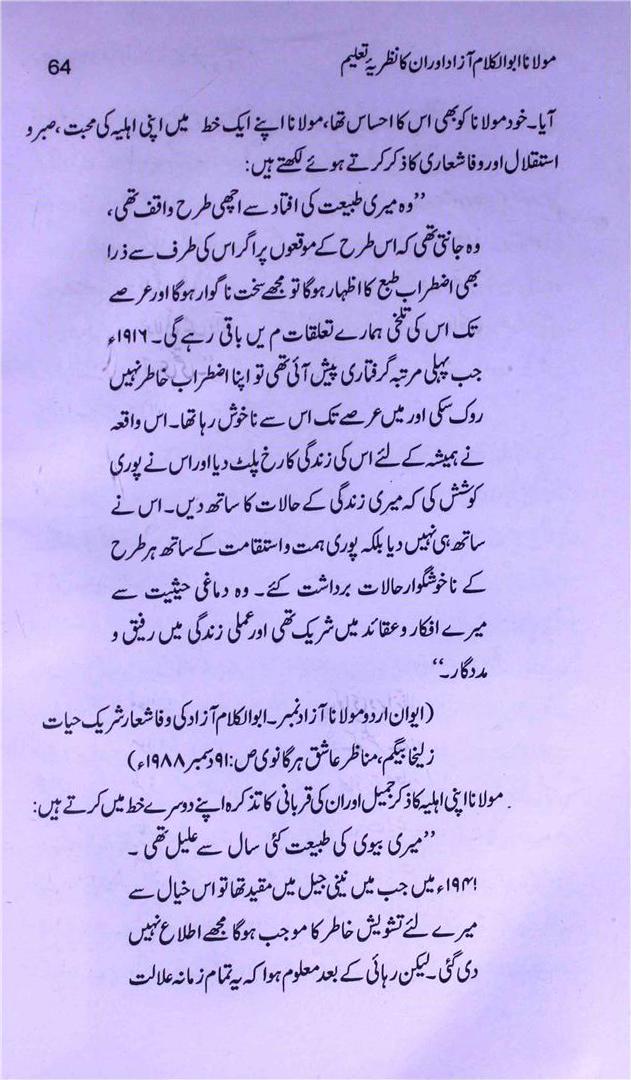 مولانا ابوالکلام آزاد اور ان کا نظریۂ تعلیم 64
آیا۔ خود مولانا کو بھی اس کا احساس تھا، مولانا اپنے ایک خط میں اپنی اہلیہ کی محبت، صبر و
استقلال اور وفا شعاری کا ذکر کرتے ہوئے لکھتے ہیں:
”وہ میری طبیعت کی افتاد سے اچھی طرح واقف تھی،
وہ جانتی تھی کہ اس طرح کے موقعوں پر اگر اس کی طرف سے ذرا
بھی اضطراب طبع کا اظہار ہوگا تو مجھے سخت ناگوار ہوگا اور عرصے
تک اس کی تلخی ہمارے تعلقات م یں باقی رہے گی۔ ۱۹۱۶ء
جب پہلی مرتبہ گرفتاری پیش آئی تھی تو اپنا اضطراب خاطر نہیں
روک سکی اور میں عرصے تک اس سے ناخوش رہا تھا۔ اس واقعہ
نے ہمیشہ کے لئے اس کی زندگی کا رخ پلٹ دیا اور اس نے پوری
کوشش کی کہ میری زندگی کے حالات کا ساتھ دیں۔ اس نے
ساتھ ہی نہیں دیا بلکہ پوری ہمت و استقامت کے ساتھ ہر طرح
کے ناخوشگوار حالات برداشت کئے۔ وہ دماغی حیثیت سے
میرے افکار و عقائد میں شریک تھی اور عملی زندگی میں رفیق و
مددگار۔“
(ایوان اردو مولانا آزاد نمبر۔ ابوالکلام آزاد کی وفا شعار شریک حیات
زلیخا بیگم، مناظر عاشق ہرگانوی ص: ۹۱ دسمبر ۱۹۸۸ء)
مولانا اپنی اہلیہ کا ذکر جمیل اور ان کی قربانی کا تذکرہ اپنے دوسرے خط میں کرتے ہیں:
”میری بیوی کی طبیعت کئی سال سے علیل تھی۔
۱۹۴۱ء میں جب میں نینی جیل میں مقید تھا تو اس خیال سے
میرے لئے تشویش خاطر کا موجب ہوگا مجھے اطلاع نہیں
دی گئی۔ لیکن رہائی کے بعد معلوم ہوا کہ یہ تمام زمانہ علالت